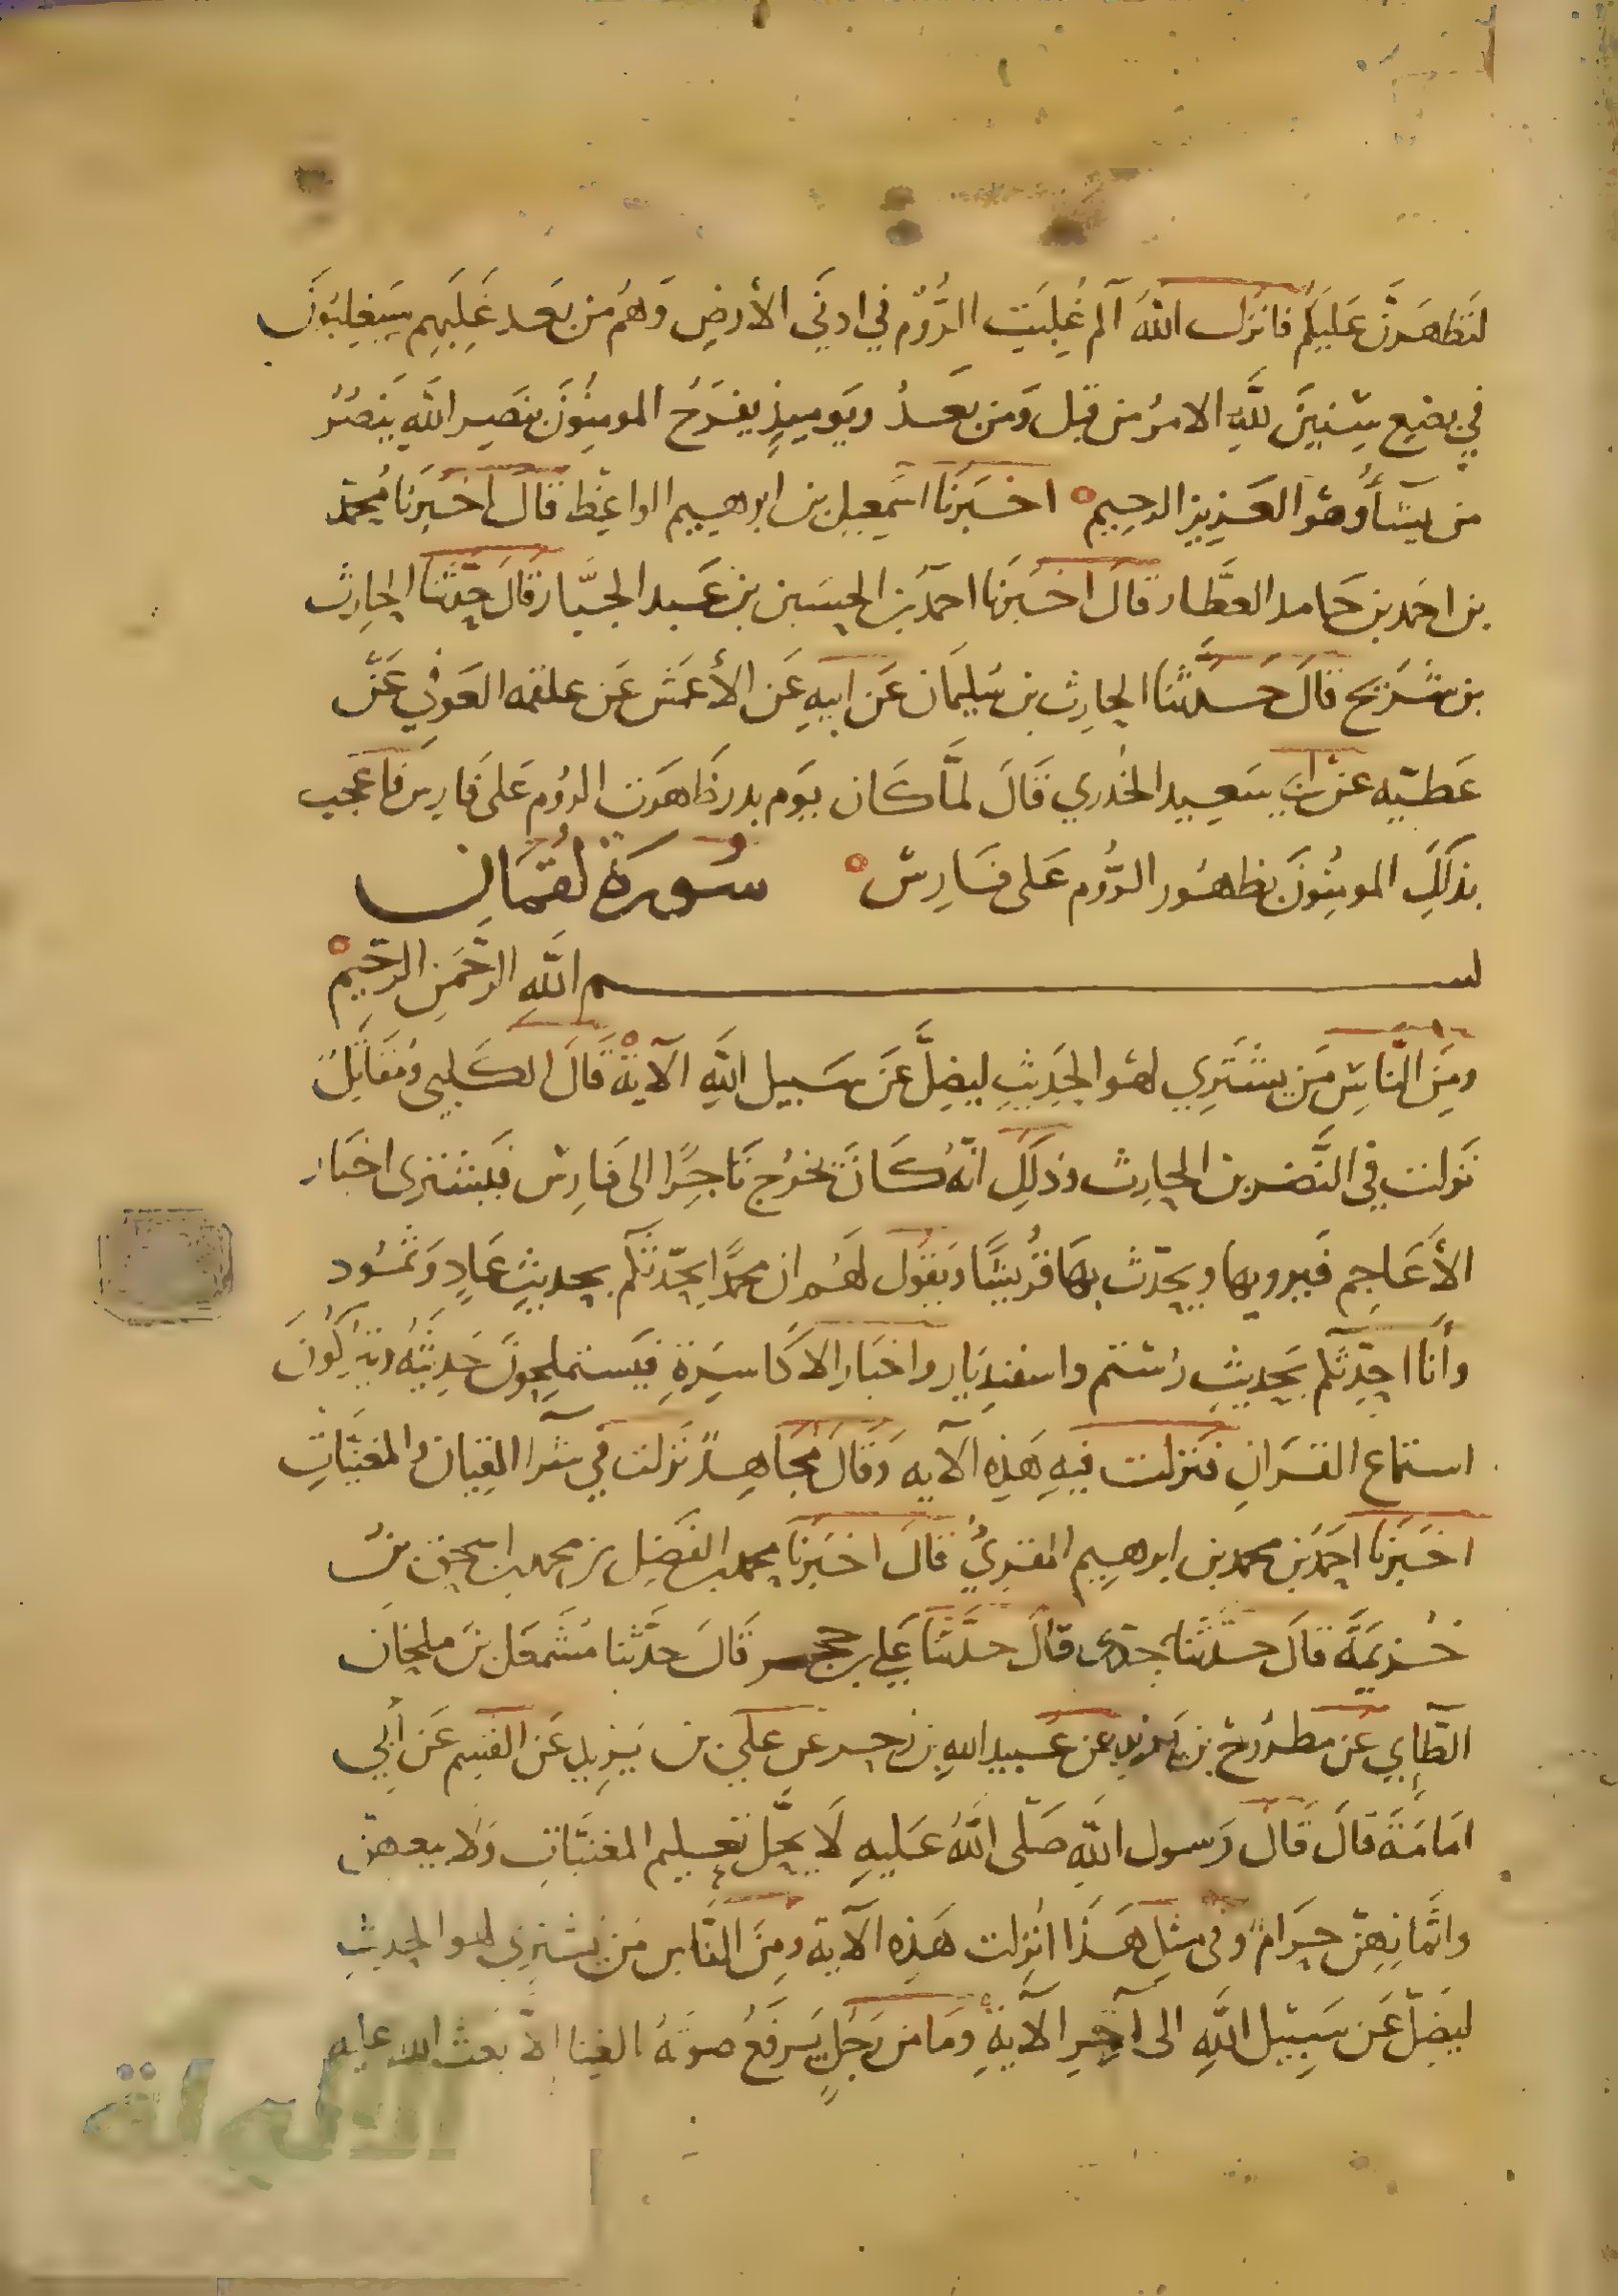 لنظهرن عليكم فانزل الله الم غلبت الروم في ادنى الارض وهم من بعد غلبهم سيغلبون
في بضع سنين لله الامر من قبل ومن بعد ويوميذ يفرح المومنون بنصر الله ينصر
من يشاء وهو العزيز الرحيم اخبرنا اسمعيل بن ابرهيم الواعظ قال اخبرنا محمد
بن احمد بن حامد العطار قال اخبرنا احمد بن الحسين بن عبد الجبار قال حدثنا الحارث
بن شريح قال حدثنا الحارث بن سليمان عن ابيه عن الأعمش عن علقمه العوفي عن
عطيه عن ابي سعيد الخدري قال لما كان يوم بدر ظاهرت الروم على فارس فاعجب
بذلك المومنون بظهور الروم على فارس سورة لقمان
بسم الله الرحمن الرحيم
ومن الناس من يشتري لهو الحديث ليضل عن سبيل الله الآية قال الكلبي ومقاتل
نزلت في النضر بن الحارث وذلك انه كان يخرج تاجرا الى فارس فيشتري اخبار
الأعاجم فيرويها ويحدث بها قريشا ويقول لهم ان محمدا يحدثكم بحديث عاد وثمود
وأنا احدثكم بحديث رستم واسفنديار واخبار الاكاسرة فيستملحون حديثه ويتركون
استماع القران فنزلت فيه هذه الآيه وقال مجاهد نزلت في شرا القيان والمغنيات
اخبرنا احمد بن محمد بن ابرهيم المقري قال اخبرنا محمد بن الفضل بن محمد بن اسحق بن
خزيمة قال حدثنا جدي قال حدثنا علي بن حجر قال حدثنا مشمعل بن ملحان
الطايي عن مطرح بن يزيد عن عبيد الله بن زحر عن علي بن يزيد عن القسم عن أبي
امامة قال قال رسول الله صلى الله عليه لا يحل تعليم المغنيات ولا بيعهن
واثمانهن حرام وفي مثل هذا انزلت هذه الآية ومن الناس من يشتري لهو الحديث
ليضل عن سبيل الله الى آخر الآية وما من رجل يرفع صوته بالغنا الا بعث الله عليه